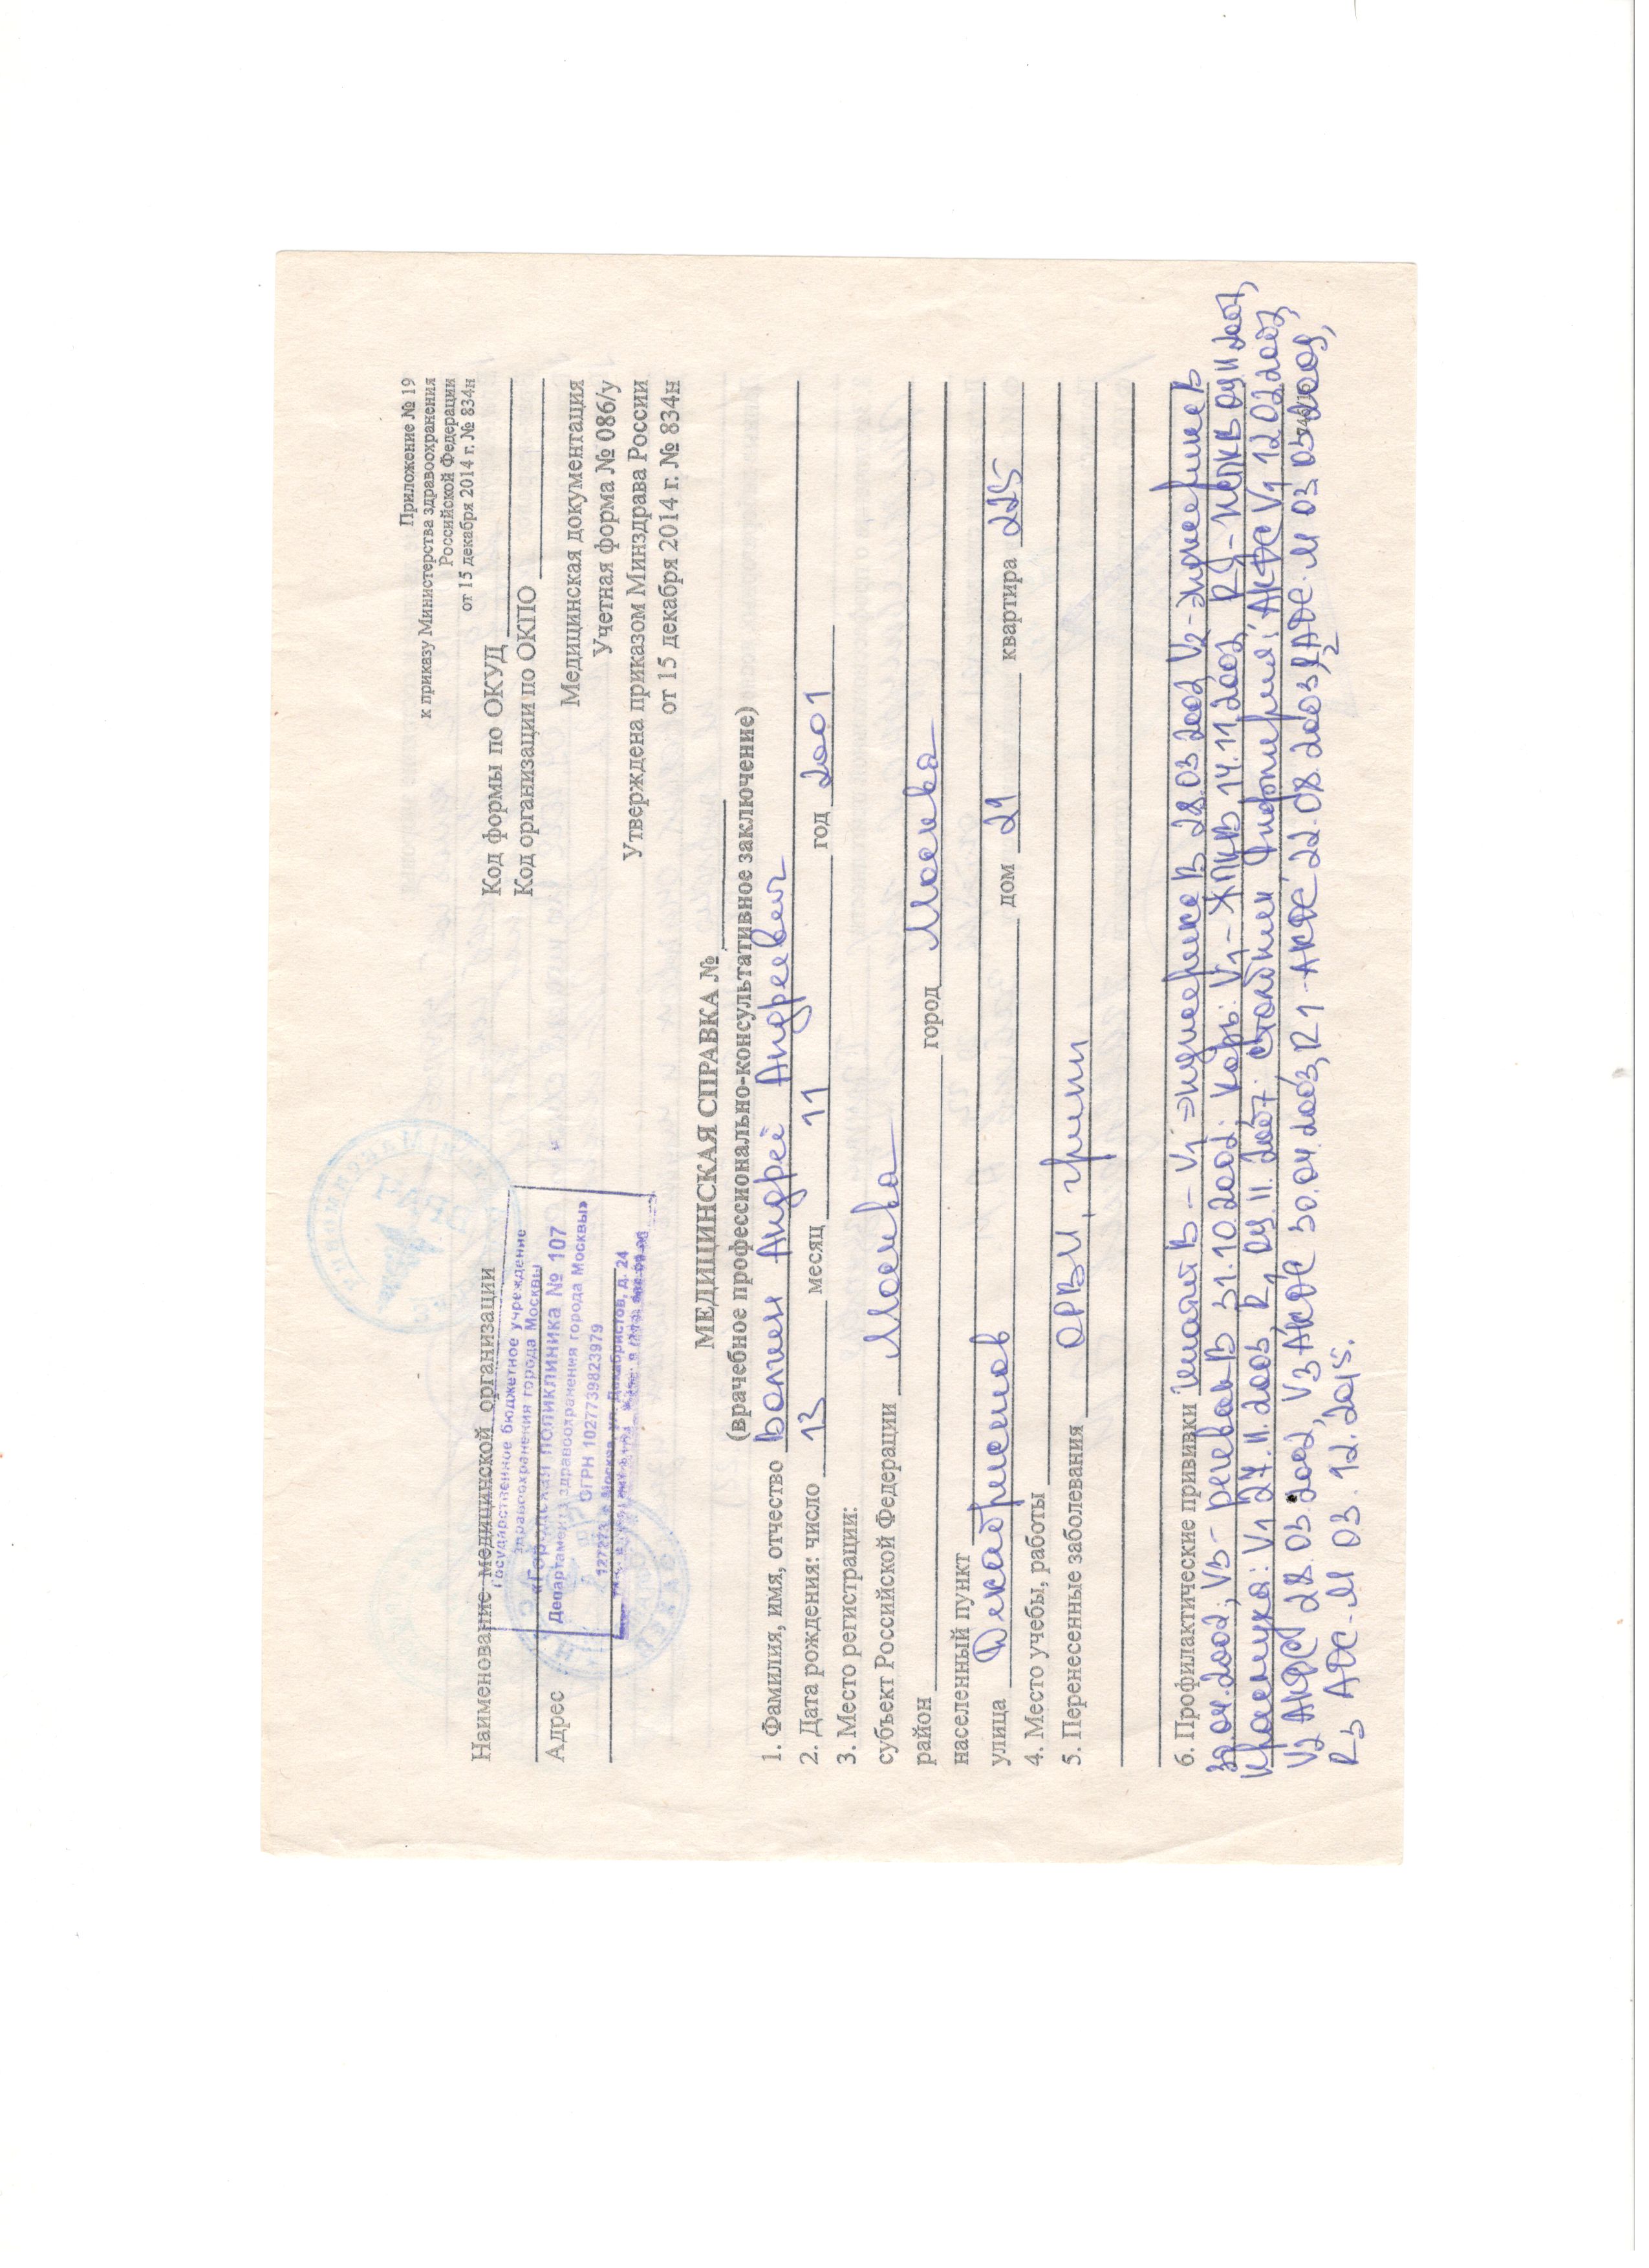 Приложение № 19
к приказу Министерства здравоохранения
Российской Федерации
от 15 декабря 2014 г. № 834н
Наименование медицинской организации
Государственное бюджетное учреждение
здравоохранения города Москвы
«Городская поликлиника № 107
Департамента здравоохранения города Москвы»
ОГРН 1027739823979
127273 г. Москва, ул. Декабристов, д. 24
Адрес
Код формы по ОКУД
Код организации по ОКПО
Медицинская документация
Учетная форма № 086/у
Утверждена приказом Минздрава России
от 15 декабря 2014 г. № 834н
МЕДИЦИНСКАЯ СПРАВКА №
(врачебное профессионально-консультативное заключение)
1. Фамилия, имя, отчество Волгин Андрей Андреевич
2. Дата рождения: число 13 месяц 11 год 2001
3. Место регистрации:
субъект Российской Федерации Москва
район город Москва
населенный пункт
улица Декабристов дом 21 квартира 225
4. Место учебы, работы
5. Перенесенные заболевания ОРВИ, грипп
6. Профилактические прививки В – V1 – энджерикс В 28.03.2002 V2 – энджерикс В
30.04.2002, V3 – В 31.10.2002. Корь: V1 – ЖПКВ 14.11.2002
Краснуха: V1 27.11.2003, R1 2007. Столбняк дифтерия: АКДС V1 12.02.2002,
V2 АКДС 28.03.2002, V3 АКДС 30.04.2003, R1 – АКДС 22.08.2003, R2 АДС-М 03.03.2009,
R3 АДС-М 03.12.2015.